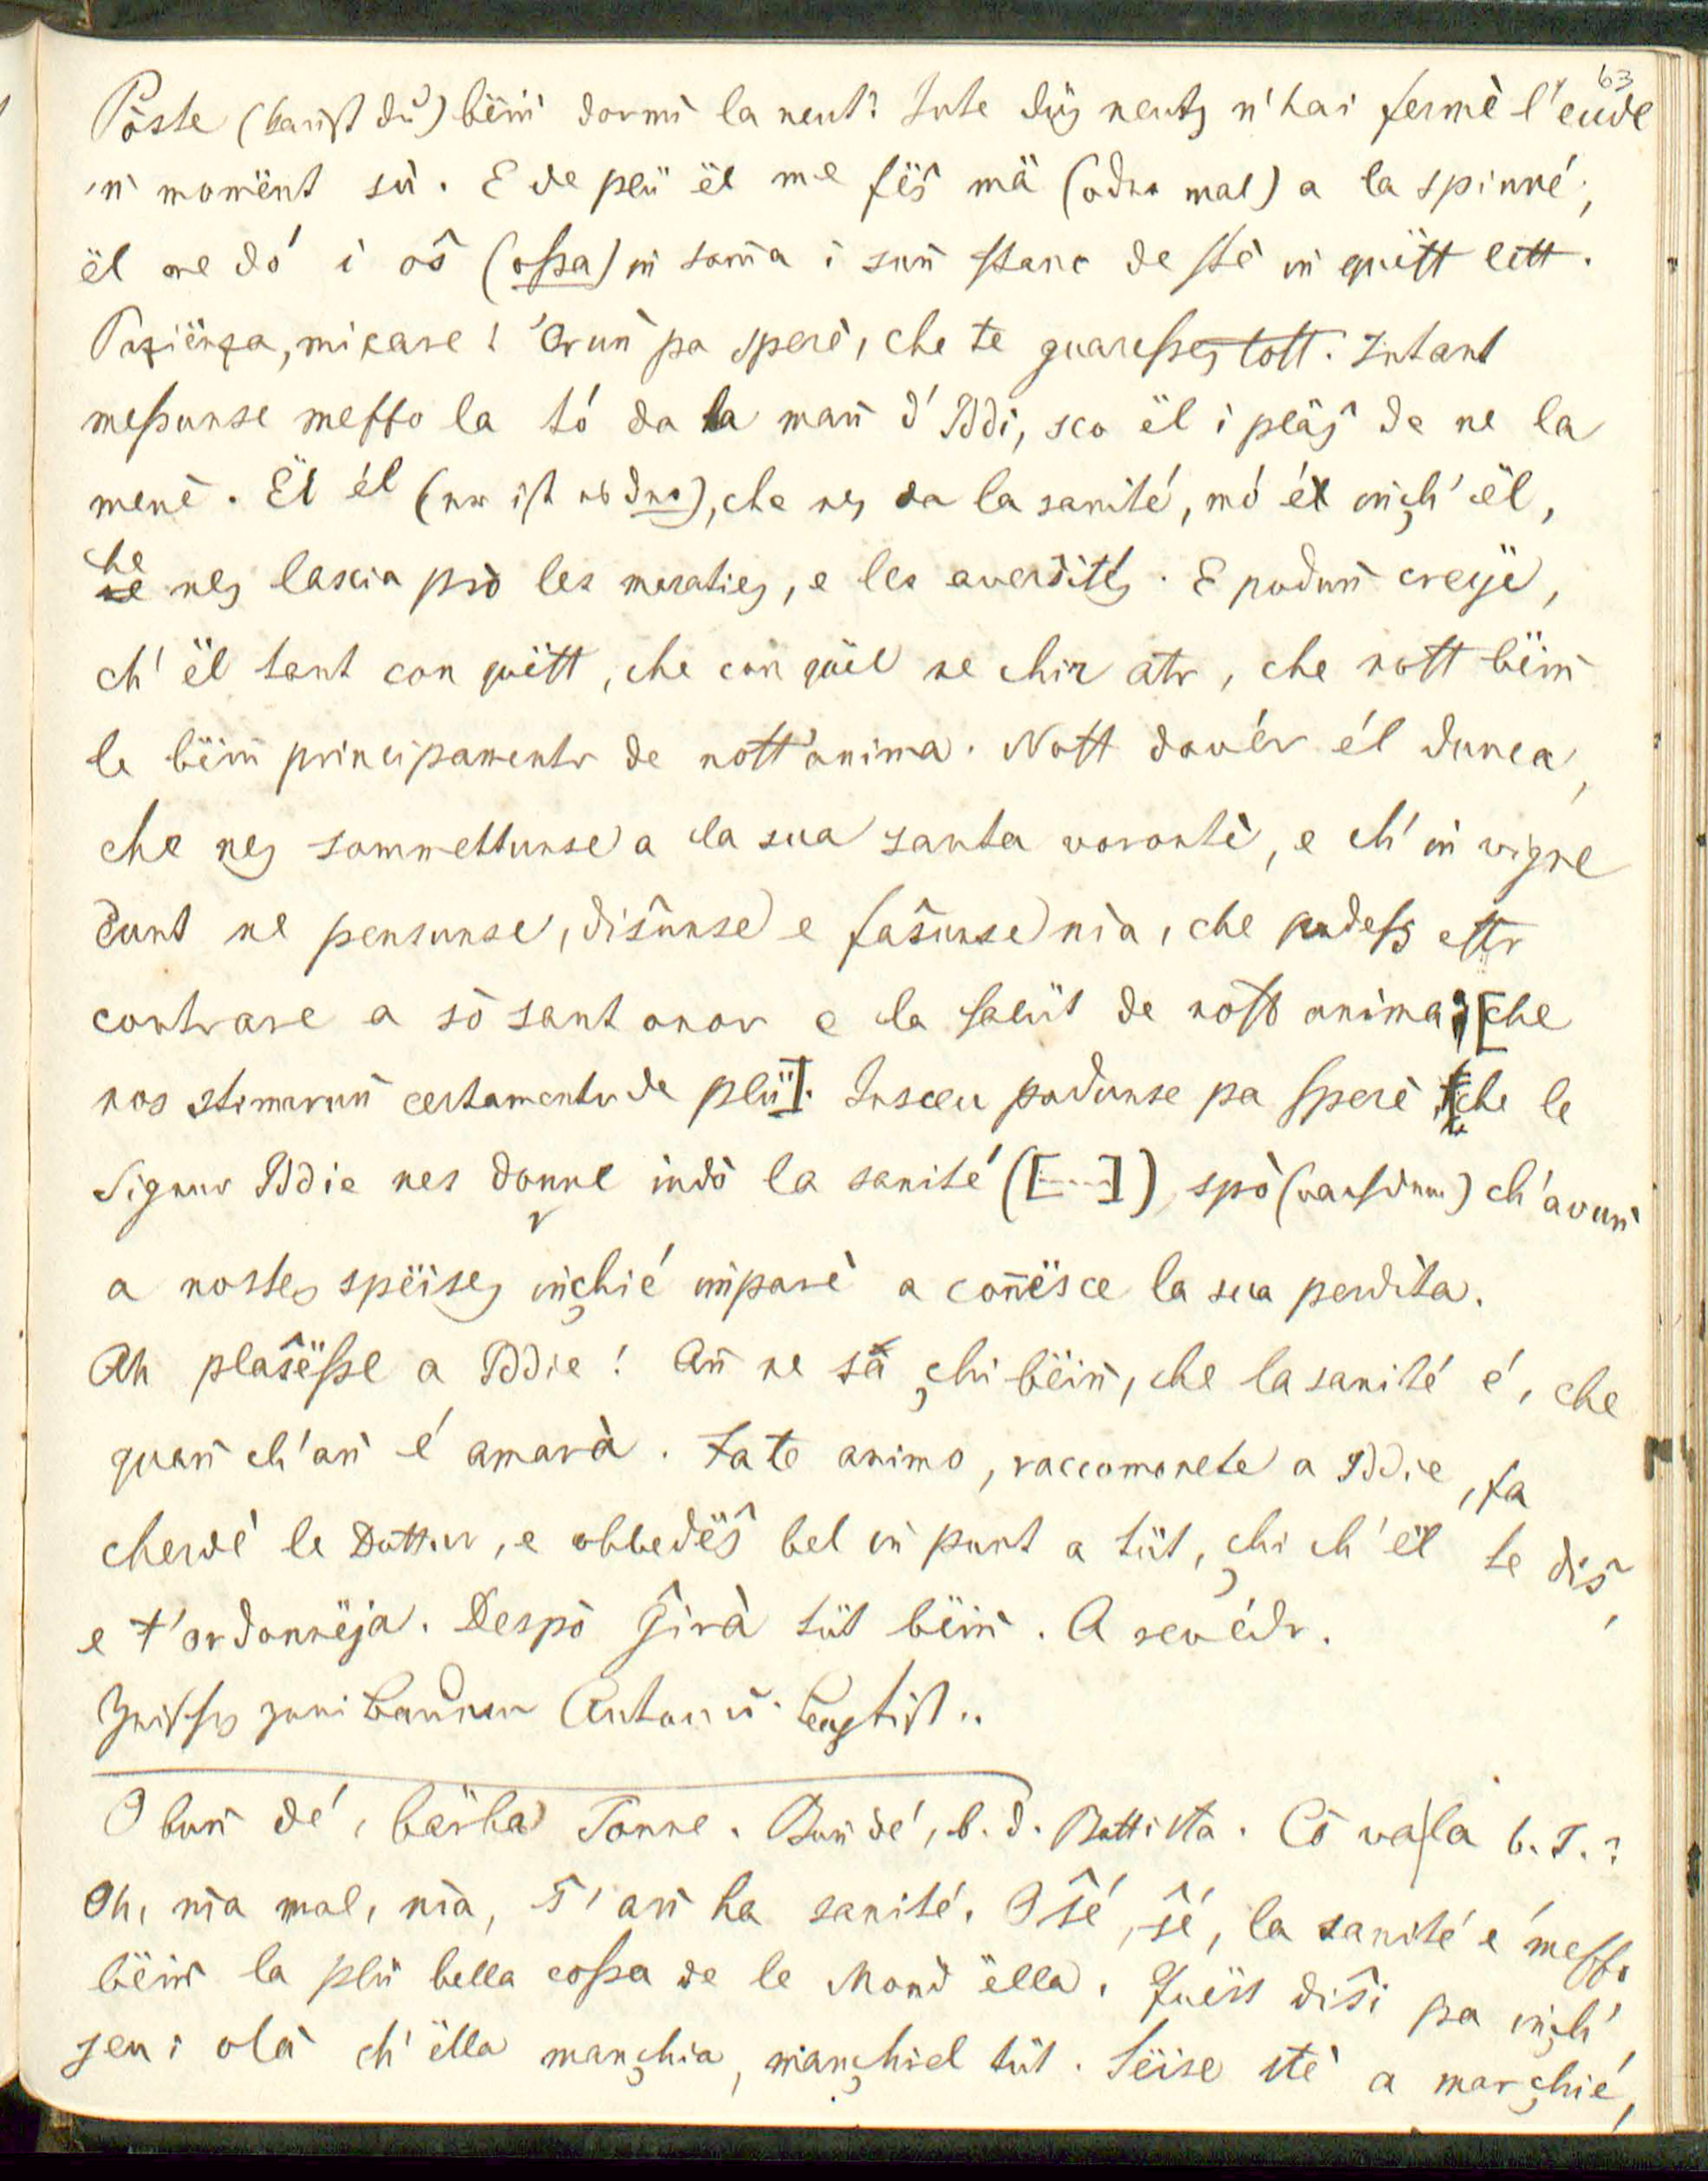 63
Pôste (kannst du) bëiñ dormì la neut? Tute düg neutes n'hai fermè l'eüdl
'ñ momënt sù. E de plü ël me fëŝ mä (oder mal) a la spinné;
ël me dó i oŝ (oſsa) iñ somma i suñ stanc de stè iñ quëst lett.
Paziënza, mi care! Oruñ pa sperè, che te guaresses tost. Intant
messunse messo la tó da la mañ d' Iddi, sco ël i pläŝ de ne la
menè. Ël él (nur ist es der), che nes da la sanité, mó él iñch' ël,
che nes lascia prò les maraties, e les aversités. E poduñ creije,
ch' ël tant con quëst, che con quël ne chir atr, che nost bëiñ
le bëiñ principamentr de nost' anima. Nost dovér él dunca,
che nes sommettunse a la sua santa vorontè, e ch' iñ vigne
cunt ne pensunse, diŝunse e faŝunse nìa, che podess estr
contrare a sò sant onor e la salüt de nost' anima; [che
nos stimaruñ certamentr de plü]. Insceu podunse pa sperè, che le
Signur Iddie nes donne indò la sanité ([....]) spò () ch' avuñ
a nostes spëises iñchié imparè a conësce la sua perdita.
Ah plaŝësse a Iddie! Añ ne sà chi bëiñ, che la sanité é, che
quañ ch' añ é amarà. Fa te animo, raccomonete a Iddie, fa
cherdè le Dottur, e obbedëŝ bel iñ punt a tüt, chi ch' ël te diŝ,
e t' ordonnëja. Despò ĝirà tüt bëiñ. A revédr.
Zwischen zwei Bauern Anton u. Baptist..
O buñ dé, bärba Tonne. Buñ dé, b. d. Battista. Cò va la b. T.?
Oh, nìa mal, nìa, ŝ' añ ha sanité. O ŝé, ŝé, la sanité é messo
bëiñ la plü bella cossa de le Mond ëlla. Quëst diŝi pa iñch'
jeu; olà ch' ëlla manchia, manchiel tüt. Sëise stè a marchié,